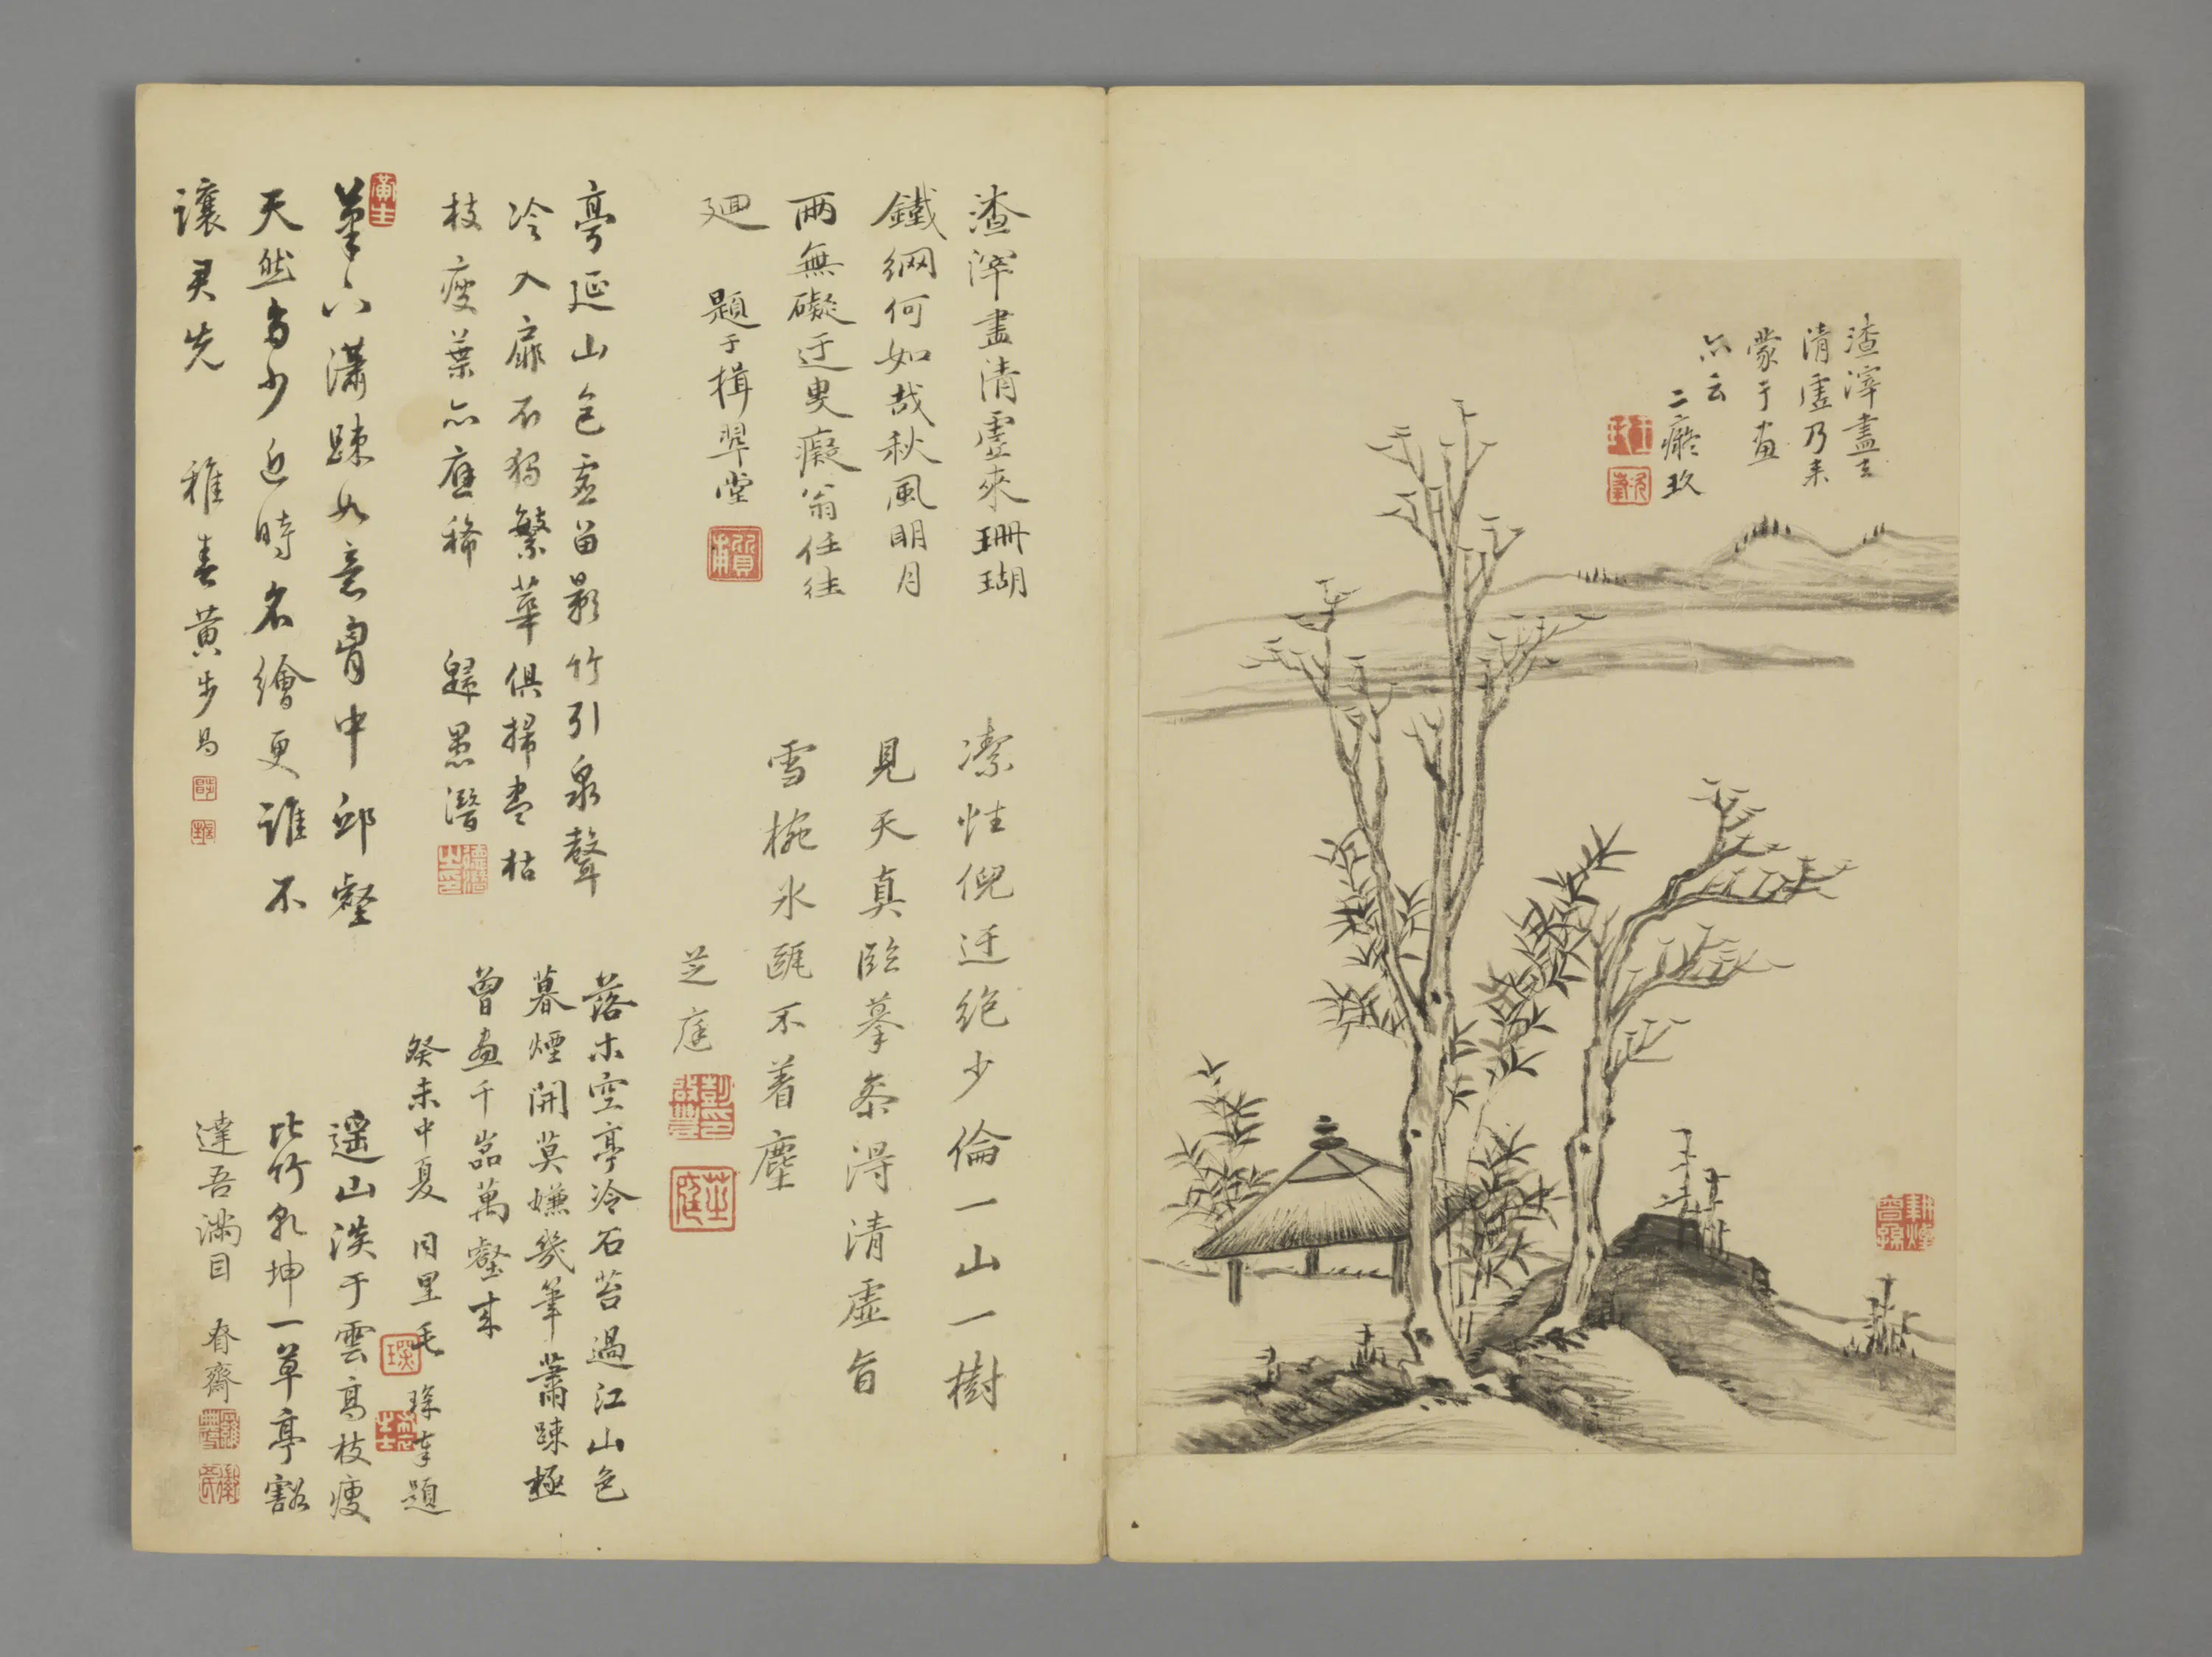 渣滓盡去
清虛乃来
蒙于画
亦云
二癡玖
渣滓盡清虛來珊瑚
鐵網何如哉秋風明月
兩無礙迂叟癡翁任往
廻 題于楫翠堂
潔性倪迂絕少倫一山一樹
見天真臨摹忝得清虛旨
雪椀氷甌不着塵
芝庭
亭延山色虛留影竹引泉聲
冷入扉不獨繁華俱掃盡枯
枝瘦葉亦應稀 歸愚潛
落木空亭冷石苔過江山色
暮煙開莫嫌幾筆蕭踈極
曾画千岩萬壑來
癸未中夏 同里毛 琛拜題
筆亦瀟踈如意胷中邱壑
天然多少近時名繪更誰不
讓君先 稚春黄步
遥山淡于雲高枝瘦
比竹乾坤一草亭豁
達吾滿目 春齋